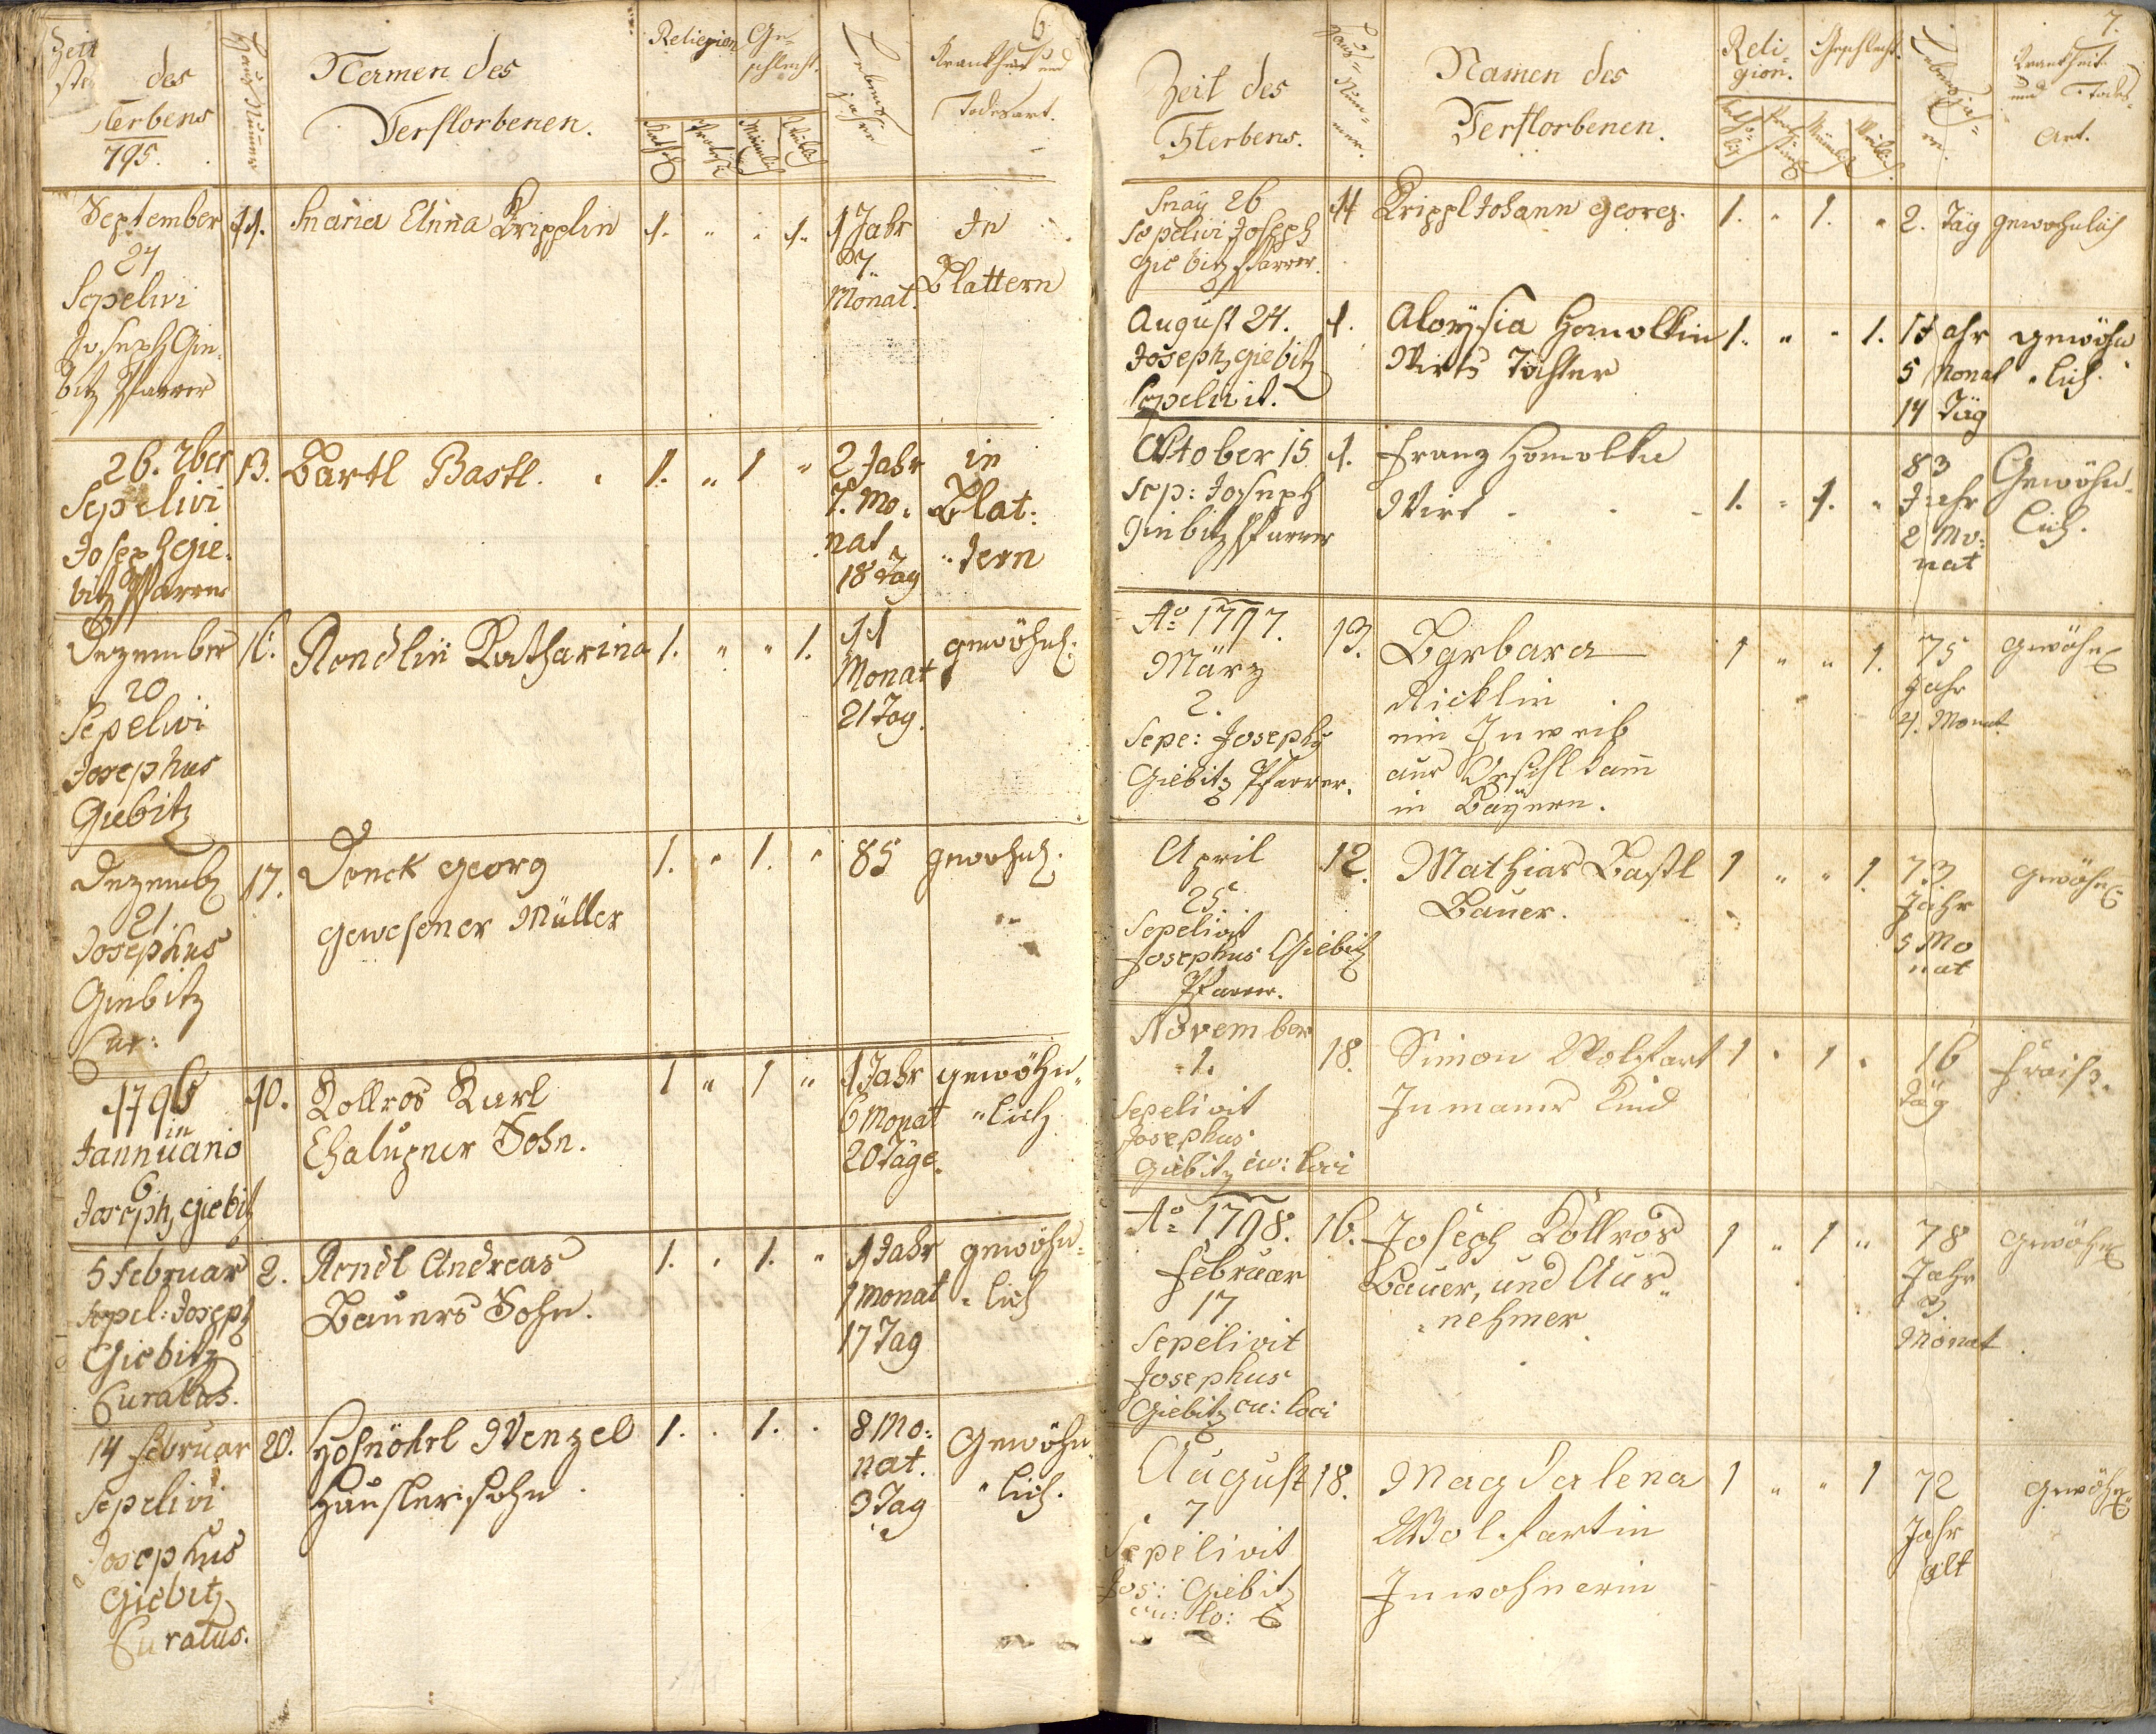 6
Zeit des
Sterbens
795.
Haus Numer
Namen des
Verstorbenen.
Religion
Ge-
schlecht.
Lebens
jahre
Krankheit und
Todesart.
September
24
Sepelivi
Joseph Gie-
bitz Pfarrer
11.
Maria Anna Kripplin
1. " " 1.
1 Jahr
7.
Monat.
In
Blattern
26. 7ber
Sepelivi
Joseph Gie-
bitz Pfarrer
13.
Bartl Bastl.
1. " 1 "
2 Jahr
7. Mo-
nat
18 Tag
in
Blat-
tern
Dezember
20
Sepelivi
Josephus
Giebitz
Rendlin Katharina
1. " " 1.
11
Monat
21 Tag.
gewöhnl:
Dezemb
21.
Josephus
Giebitz
Cur:
17.
Denck Georg
gewesener Müller
1. " 1. "
85
gewöhnl.
1796
in
Jannuario
6
Joseph Giebitz
10.
Kollros Karl
Chalupner Sohn.
1 " 1 "
1 Jahr
6 Monat
20 Tage.
gewöhn
"lich
5 Februar
Sepel: Joseph
Giebitz
Curatus.
2.
Rendl Andreas
Bauers Sohn.
1. " 1. "
1 Jahr
1 Monat
17 Tag
gewöhn=
lich
14 Februar
Sepelivi
Josephus
Giebitz
Curatus.
20.
Hosnöhrl Wenzel
Häuslersohn
1. . 1. .
8 Mo:
nat.
9 Tag
Gewöhn
"lich.
7.
Zeit des
Sterbens.
Haus=
Num=
mer.
Namen des
Verstorbenen.
Reli-
gion.
Geschlecht.
Lebens ja=
re.
Krankheit
und Todes-
Art.
May 26
Sepelivi Joseph
Giebitz Pfarrer.
11
Krippl Johann Georg.
1. " 1. "
2. Täg
gewöhnlich
August 24.
Joseph Giebitz
Sepelivit.
1.
Aloysia Homolkin
Wirts Tochter
1. " " 1.
1 Jahr
5 Monat
14 Täg
gewöhn
"lich.
Oktober 15
Sep: Joseph
Giebitz Pfarrer
1.
Franz Homolka
Wirt
1. " 1. "
83
Jahr
2 Mo:
nat
Gewöhn-
lich.
Ao 1797.
März
2.
Sepe: Joseph
Giebitz Pfarrer.
13.
Barbara
Ricklin
ein Inweib
aus
in Bayern.
1 " " 1.
75
Jahr
4. Monat
gewöhnl
April
25.
Sepelivit
Josephus Giebitz
Pfarrer.
12.
Mathias Bastl
Bauer.
1 " " 1.
73
Jahr
5 Mo
nat
gewöhnl:
November
1.
Sepelivit
Josephus
Giebitz cu: loci
18.
Simon Wolfart
Inmanns Kind
1 " 1 "
16
Täg
Frais.
Ao 1798.
Februar
17
Sepelivit
Josephus
Giebitz cu: loci
16.
Joseph Kollros
Bauer, und Aus"
"nehmer
1 " 1 "
78
Jahr
3
Monat
gewöhnl
August
7
Sepelivit
Jos: Giebitz
cu: lo:
18.
Magdalena
Wolfartin
Inwohnerin
1 " " 1
72
Jahr
alt
gewöhnl